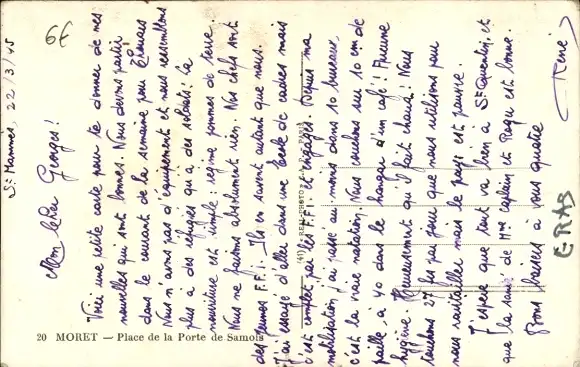 6€
St Mammes, 22/3/45
Mon Cher Georges!
Voici une petite carte pour te donner de mes
nouvelles qui sont bonnes. Nous devons partir
dans le courant de la semaine pour
Nous n'avons pas d'équipement et nous ressemblons
plus à des réfugiés qu'à des soldats! La
nourriture est simple: régime pommes de terre.
Nous ne faisons absolument rien. Nos chefs sont
des jeunes F.F.I. Ils en savent autant que nous.
J'ai essayé d'aller dans une école de cadres mais
c'est complet par les F.F.I. et engagés. Depuis ma
mobilisation j'ai passé au moins dans 10 bureaux,
c'est la vraie natation. Nous couchons sur 10 cm de
paille, à 40 dans le hangar d'un café! Aucune
hygiène. Heureusement qu'il fait chaud! Nous
touchons 27 frs par jour que nous utilisons pour
nous ravitailler mais le pays est pauvre.
J'espère que tout va bien à St Quentin, et
que la santé de Mme Caplain et Roger est bonne.
Bons baisers à vous quatre
René
E-RAB
20 MORET — Place de la Porte de Samois